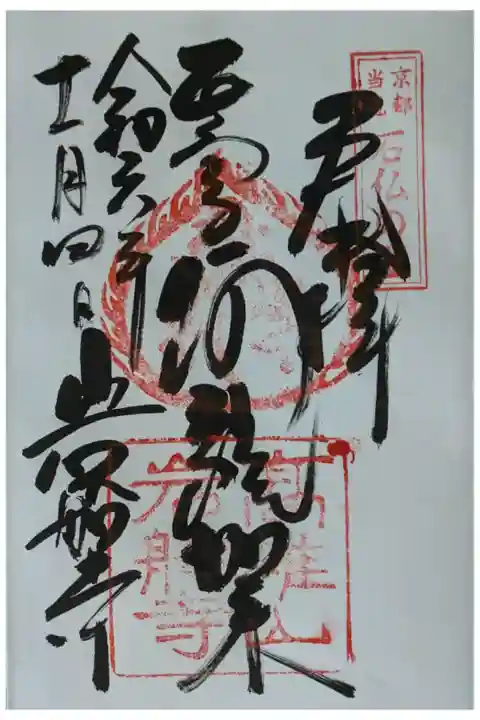 京都
当尾
石仏の
奉拝
阿弥陀如来
令和六年
十一月四日 岩船寺
高雄山
岩船寺